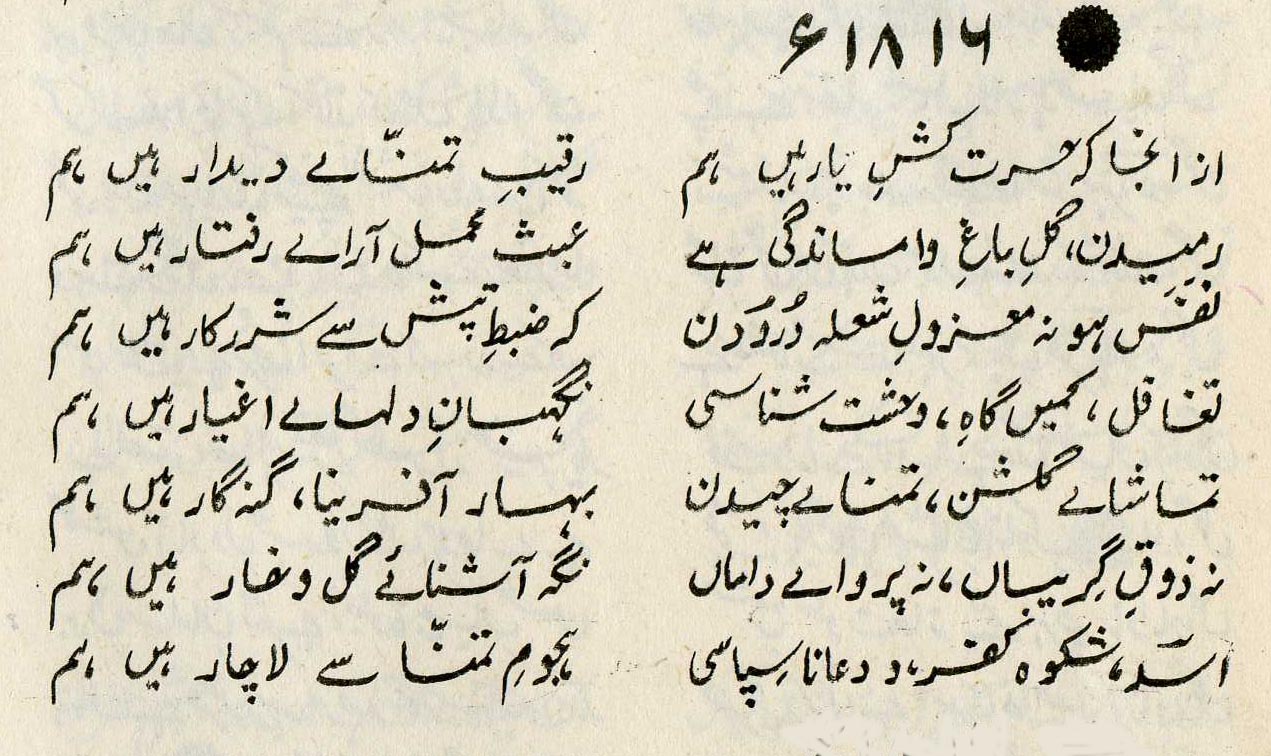 ۱۸۱۶ء
از انجا کہ حسرت کشِ یار ہیں ہم رقیبِ تمنّائے دیدار ہیں ہم
رمیدن، گلِ باغِ واماندگی ہے عبث محمل آرائے رفتار ہیں ہم
نفَس ہو نہ معزولِ شعلہ دُرُودَن کہ ضبطِ تپش سے شرر کار ہیں ہم
تغافل، کمیں گاہِ، وحشت شناسی نگہبانِ دلہائے اغیار ہیں ہم
تماشائے گلشن، تمنائے چیدن بہار آفرینا، گنہ گار ہیں ہم
نہ ذوقِ گریباں، نہ پروائے داماں نگہ آشنائے گل و خار ہیں ہم
اسدؔ، شکوہ کفر، و دعا ناسپاسی ہجومِ تمنّا سے لاچار ہیں ہم